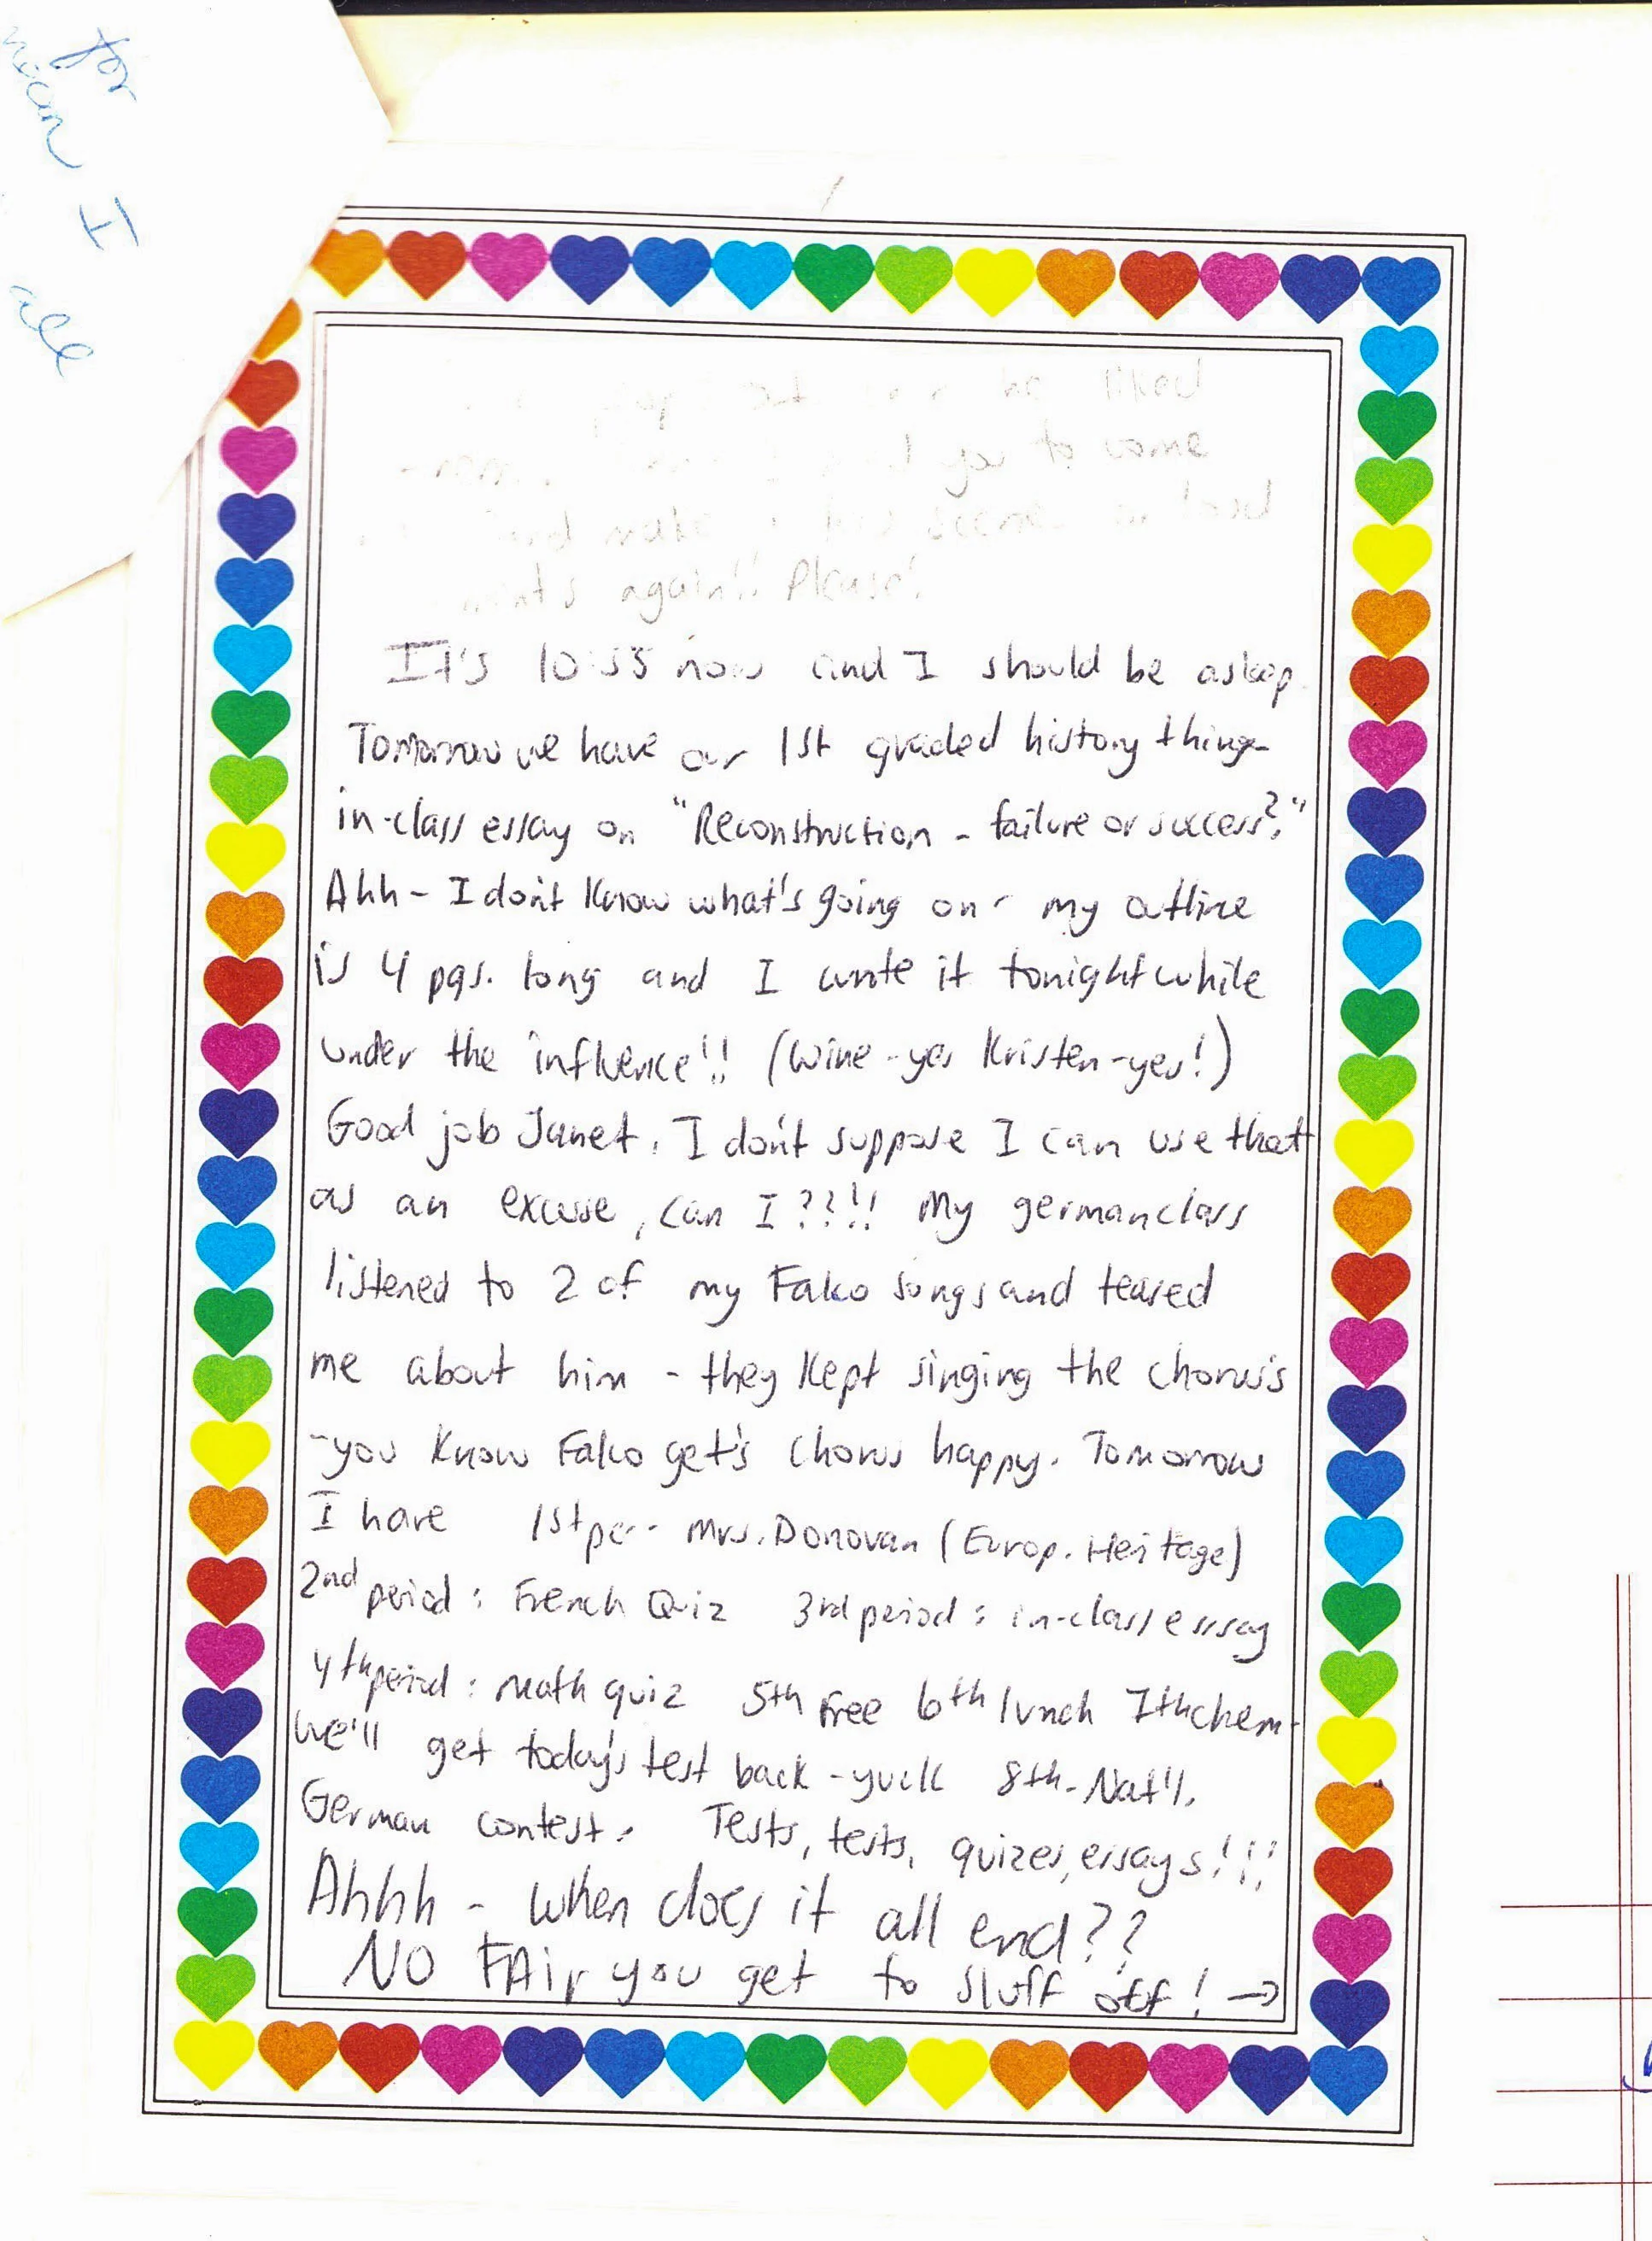 for
mean I
all
he liked
you to come
and make scene
again!! Please!
It's 10:55 now and I should be asleep.
Tomorrow we have our 1st graded history thing-
in-class essay on "Reconstruction - failure or success?"
Ahh - I don't know what's going on - my outline
is 4 pgs. long and I wrote it tonight while
under the influence!! (Wine - yes Kristen - yes!)
Good job Janet. I don't suppose I can use that
as an excuse, can I??!! My german class
listened to 2 of my Falco songs and teased
me about him - they kept singing the chorus's
- you know Falco get's chorus happy. Tomorrow
I have 1st per- Mrs. Donovan (Europ. Heritage)
2nd period: French Quiz 3rd period: in-class essay
4th period: math quiz 5th Free 6th lunch 7th chem-
we'll get today's test back - yuck 8th - Nat'l.
German contest. Tests, tests, quizes, essays!!!
Ahhh - when does it all end??
NO FAir you get to sluff off! →